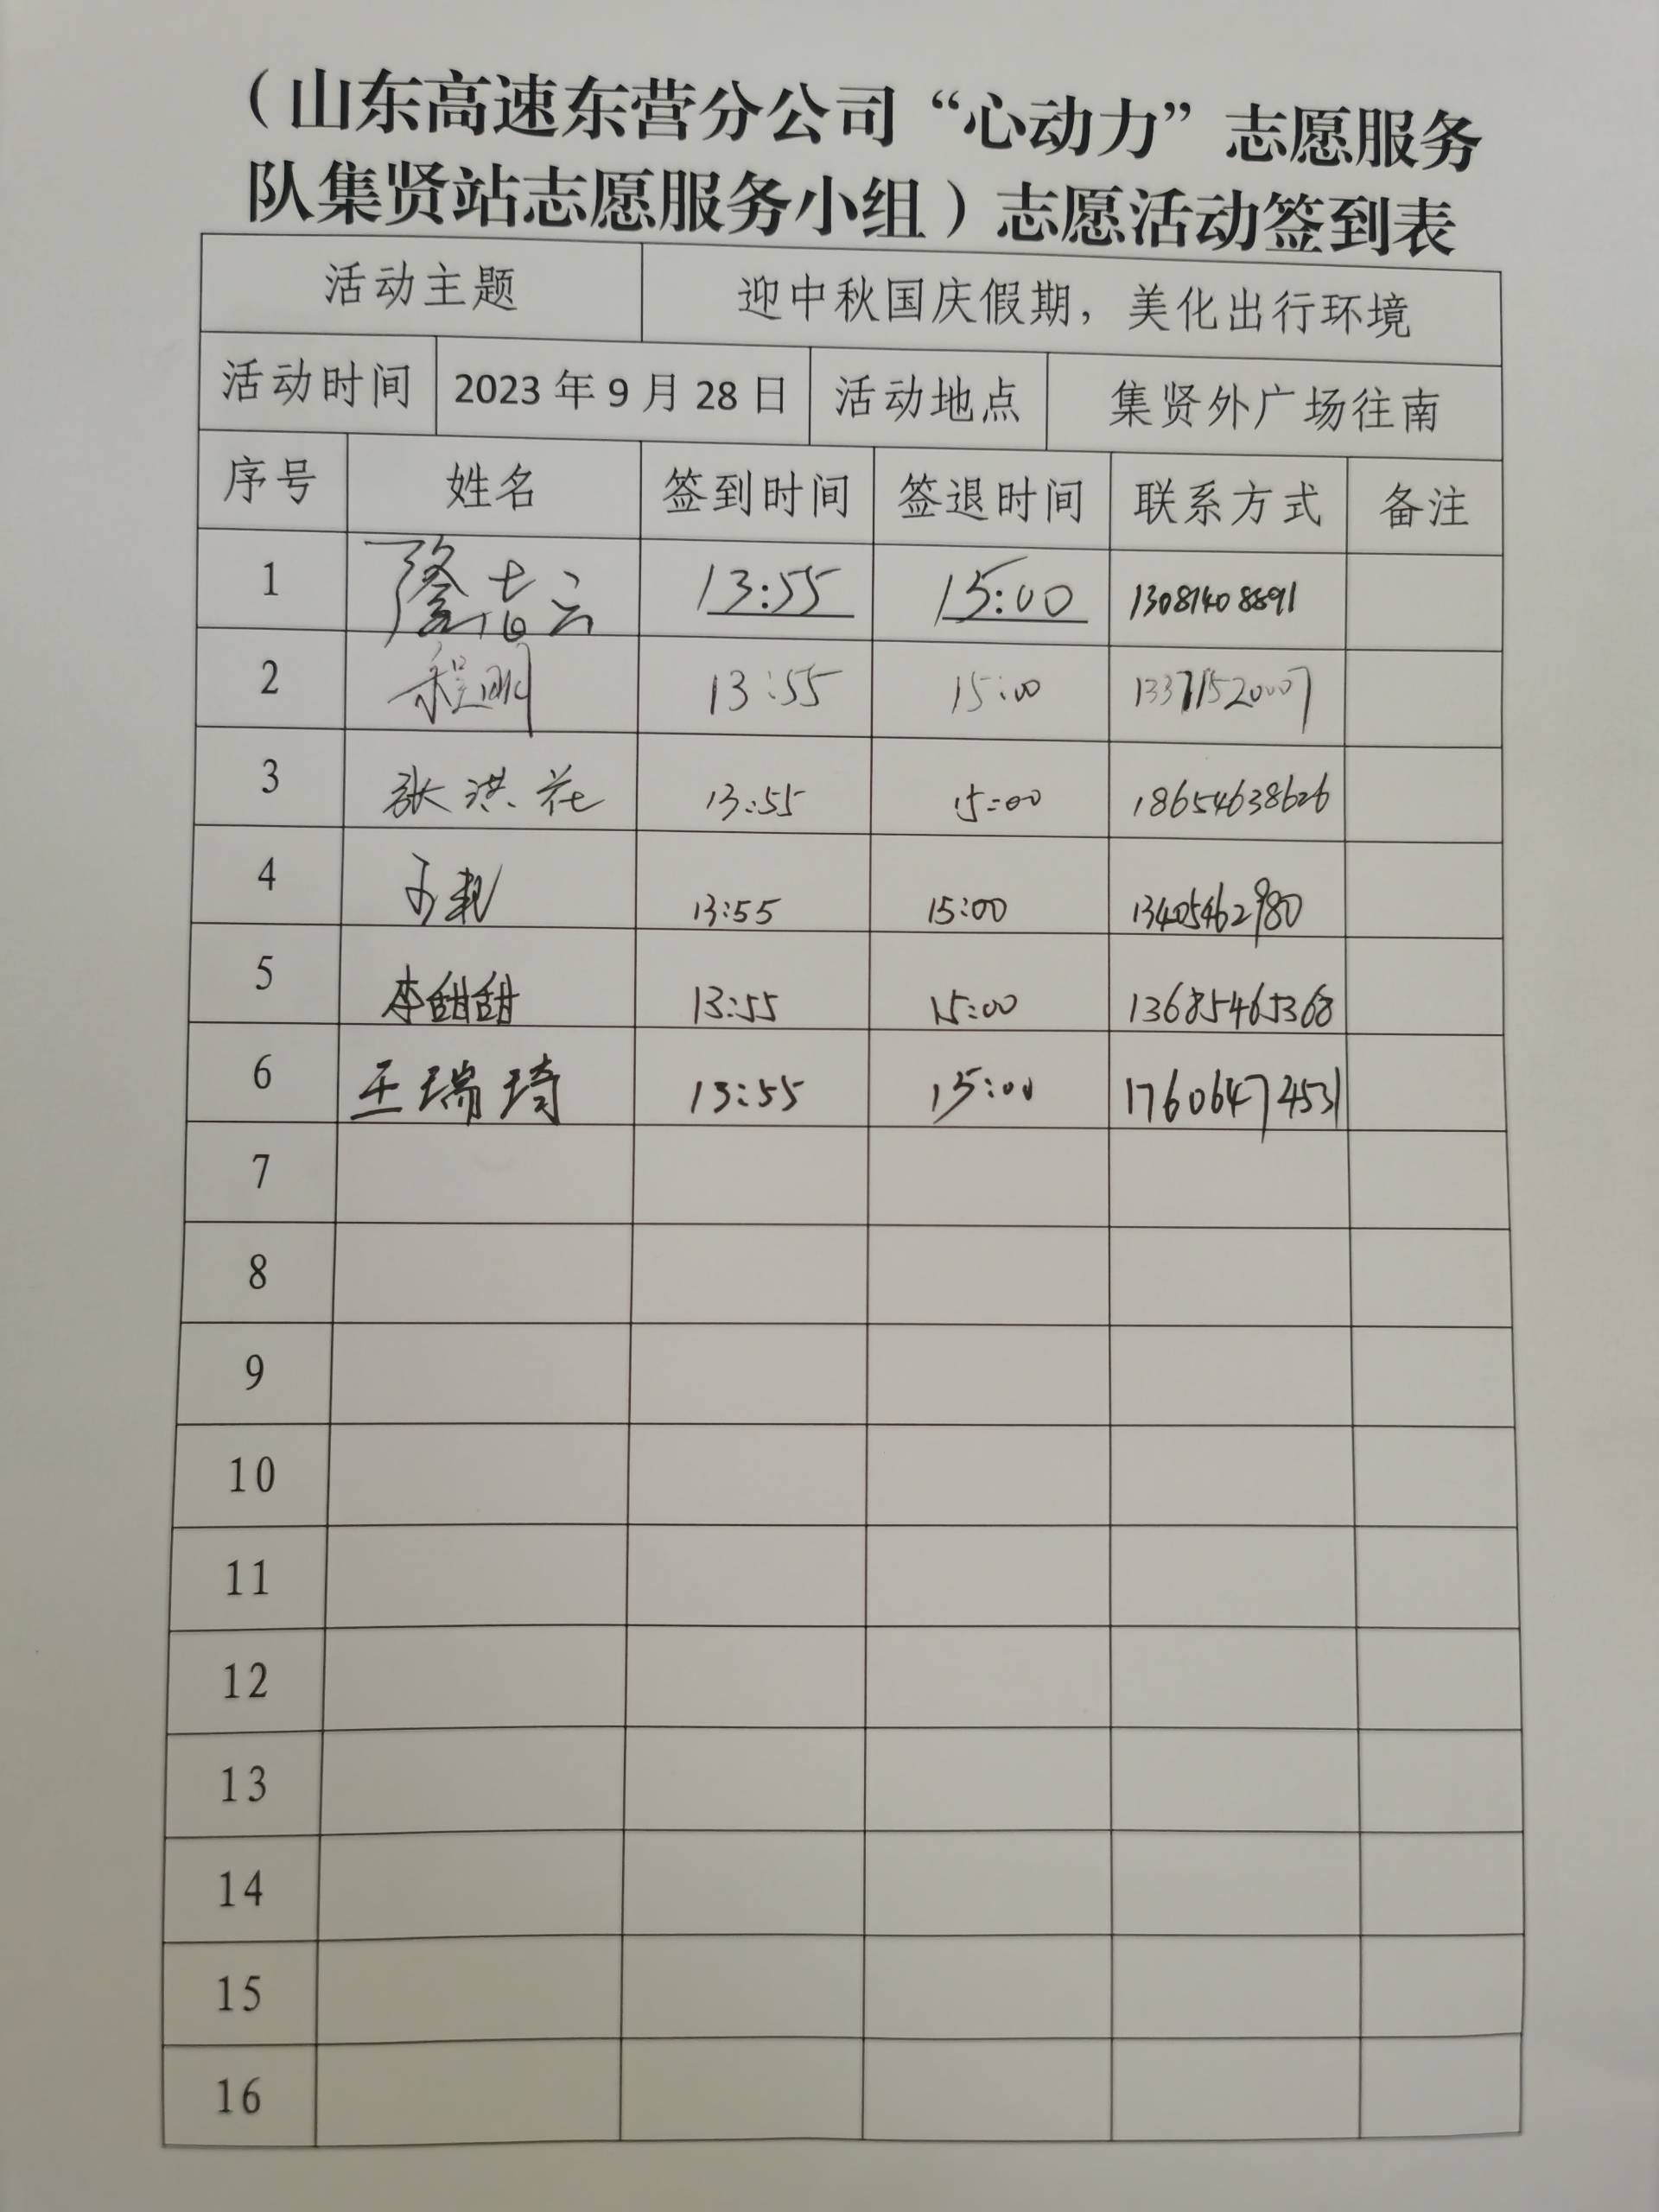 （山东高速东营分公司“心动力”志愿服务
队集贤站志愿服务小组）志愿活动签到表
活动主题 迎中秋国庆假期，美化出行环境
活动时间 2023年9月28日 活动地点 集贤外广场往南
序号 姓名 签到时间 签退时间 联系方式 备注
1 13:55 15:00 13081408891
2 13:55 15:00 13371520007
3 张洪花 13:55 15:00 18654638626
4 13:55 15:00 13405462980
5 李甜甜 13:55 15:00 13685465368
6 王瑞琦 13:55 15:00 17606474531
7
8
9
10
11
12
13
14
15
16